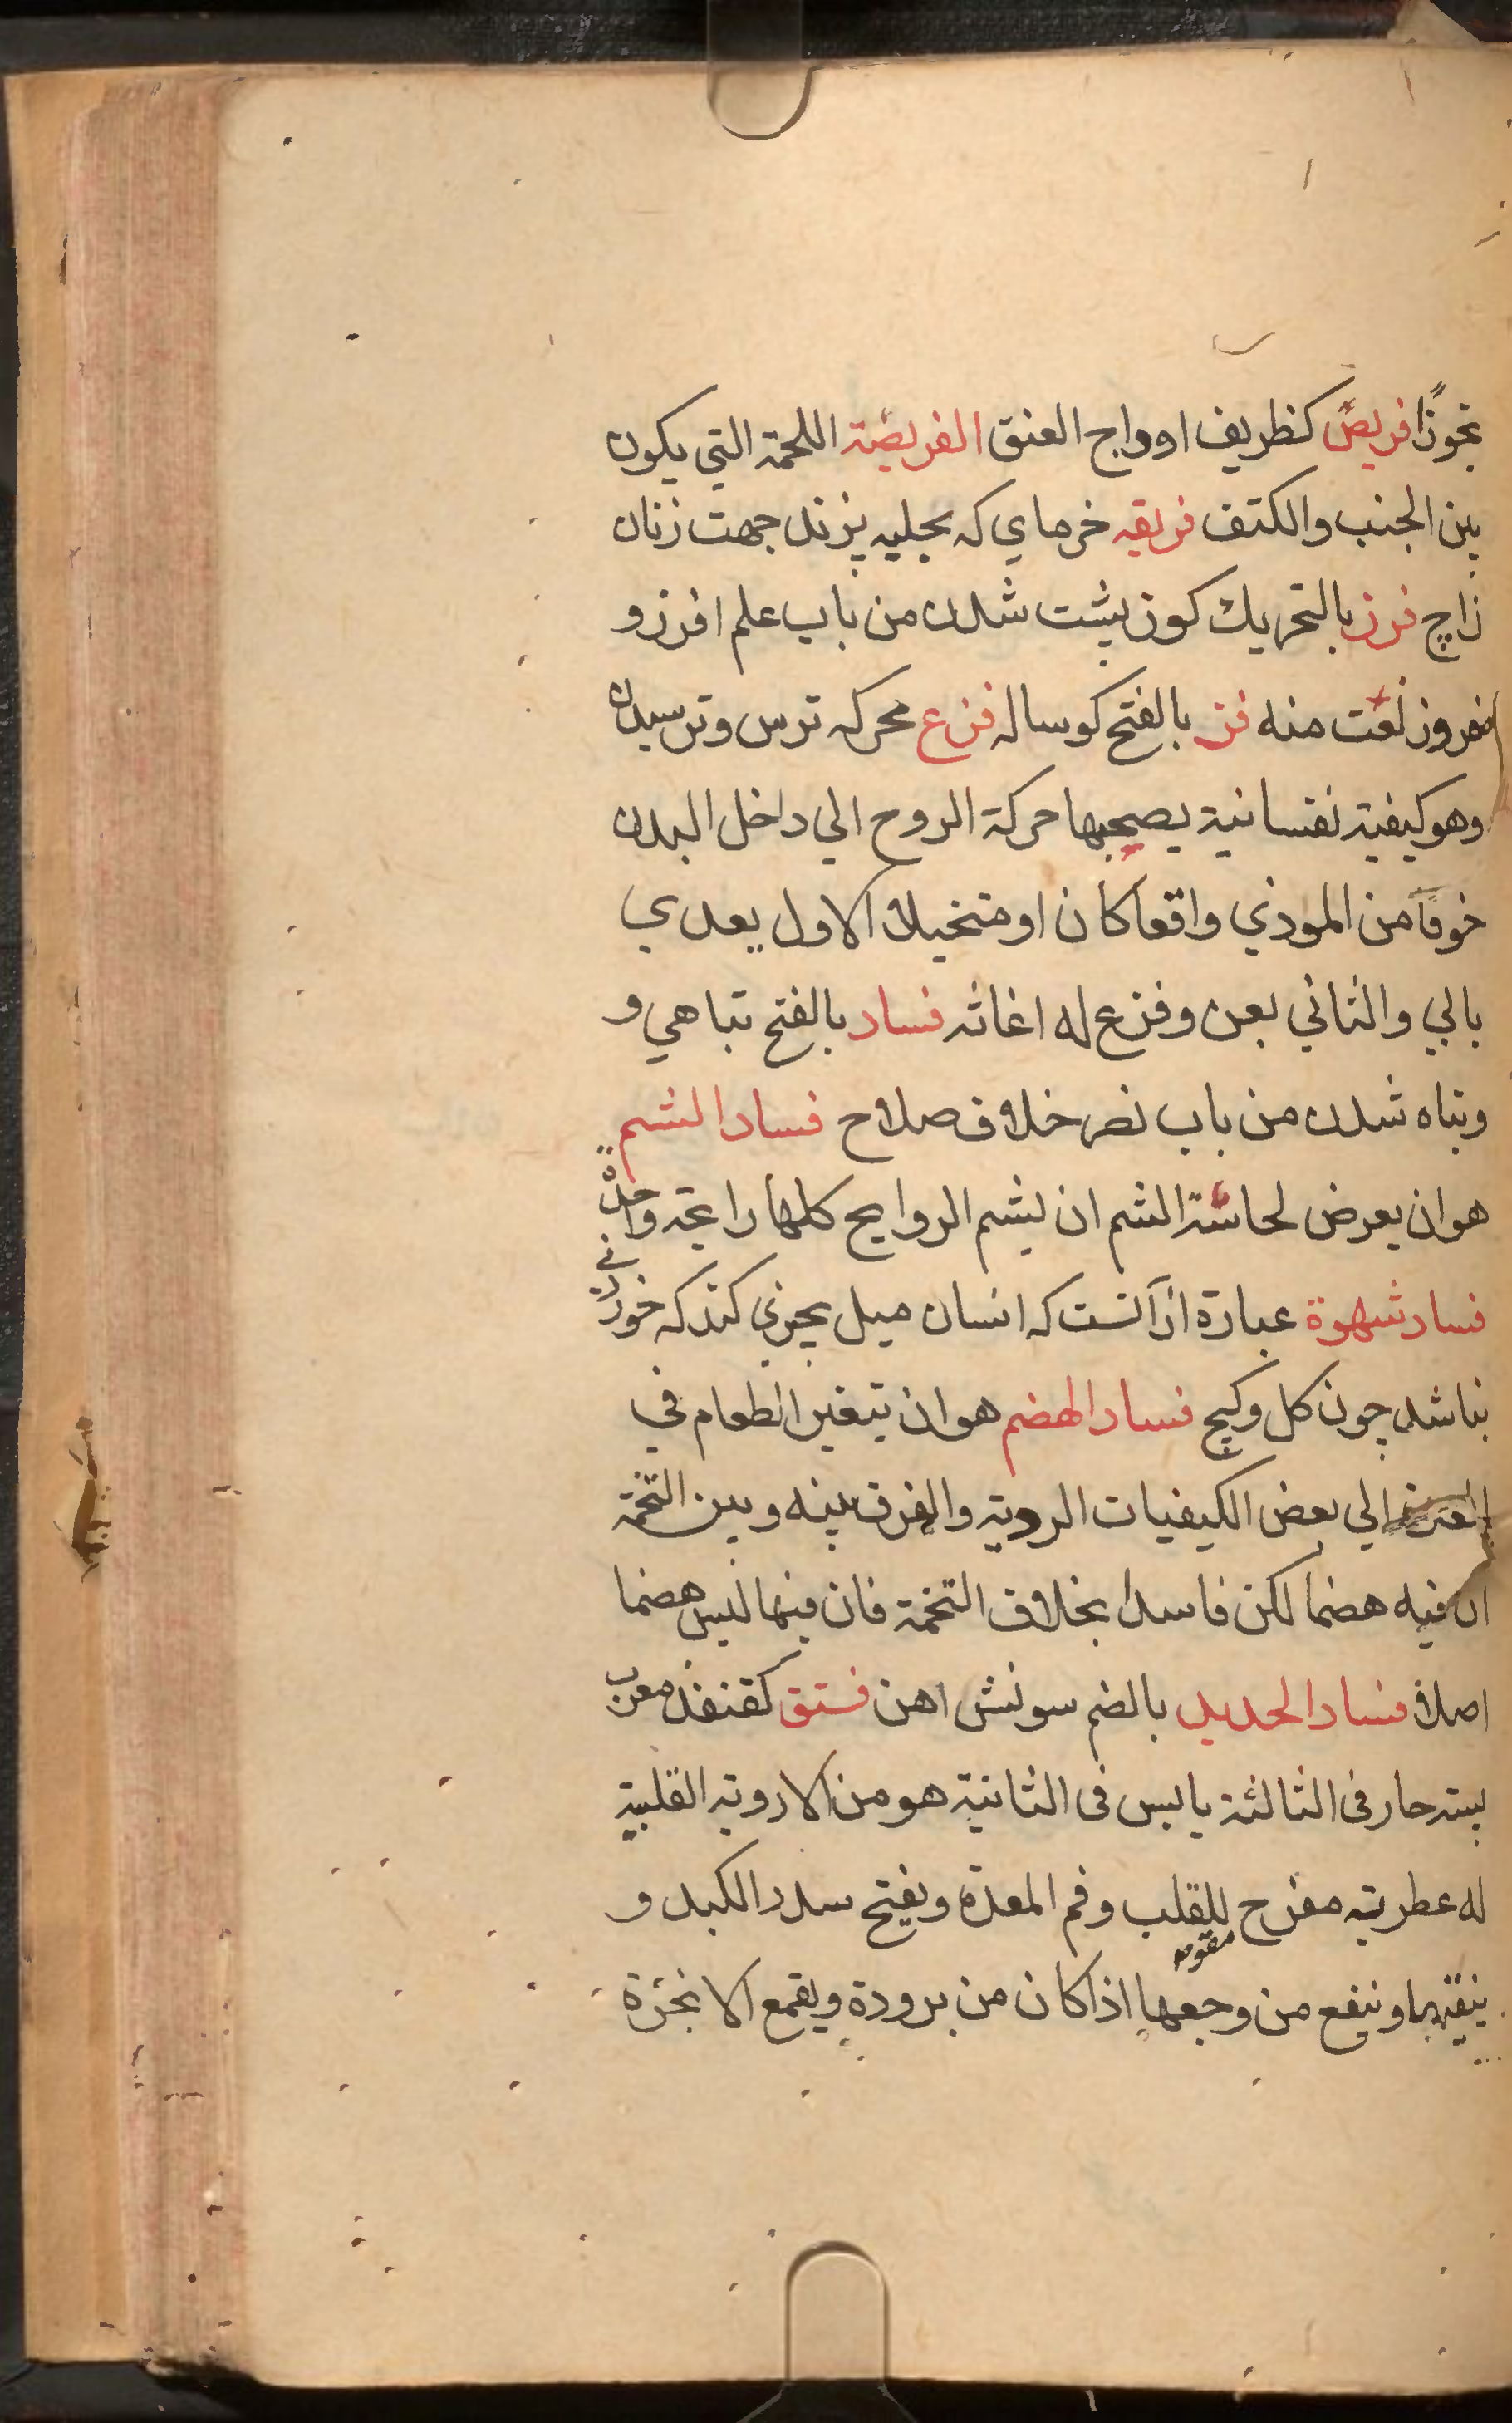 تجوزًا فريص كظريف اوداج العنق الفريصة اللحمة التي يكون
بين الجنب والكتف فريقه خرماي كه بحليه بزند جهت زنان
زاج فرز بالتحريك كوز پشت شدن من باب علم افرز و
مفروز نعت منه فز بالفتح كوساله فزع محركه ترس وترسيدن
وهو كيفية نفسانية يصحبها حركة الروح الي داخل البدن
خوفا من الموذي واقعا كان او متخيلا الاول يعدي
بالي والثاني بعن وفزع له اغاثه فساد بالفتح تباهي و
وتباه شدن من باب نصر خلاف صلاح فساد الشم
هو ان يعرض لحاسة الشم ان يشم الروايح كلها رايحة واحدة
فساد شهوة عبارة از آنست كه انسان ميل بچيزي كند كه خوردني
نباشد چون كل وكچ فساد الهضم هو ان يتغير الطعام في
الي بعض الكيفيات الردية والفرق بينه وبين التخمة
ان فيه هضما لكن فاسدا بخلاف التخمة فان فيها ليس هضما
اصلا فساد الحديد بالضم سونش اهن فستق كقنفذ معرب
پسته حار في الثالثة يابس في الثانية هو من الادوية القلبية
له عطرية مفرح للقلب وفم المعدة ويفتح سدد الكبد و
مقوم
ينقيها وينفع من وجعها اذا كان من برودة ويقمع الابخرة